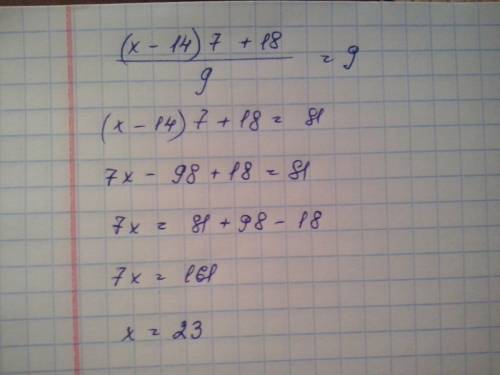 (x - 14) 7 + 18
9
= 9
(x - 14) 7 + 18 = 81
7x - 98 + 18 = 81
7x = 81 + 98 - 18
7x = 161
x = 23